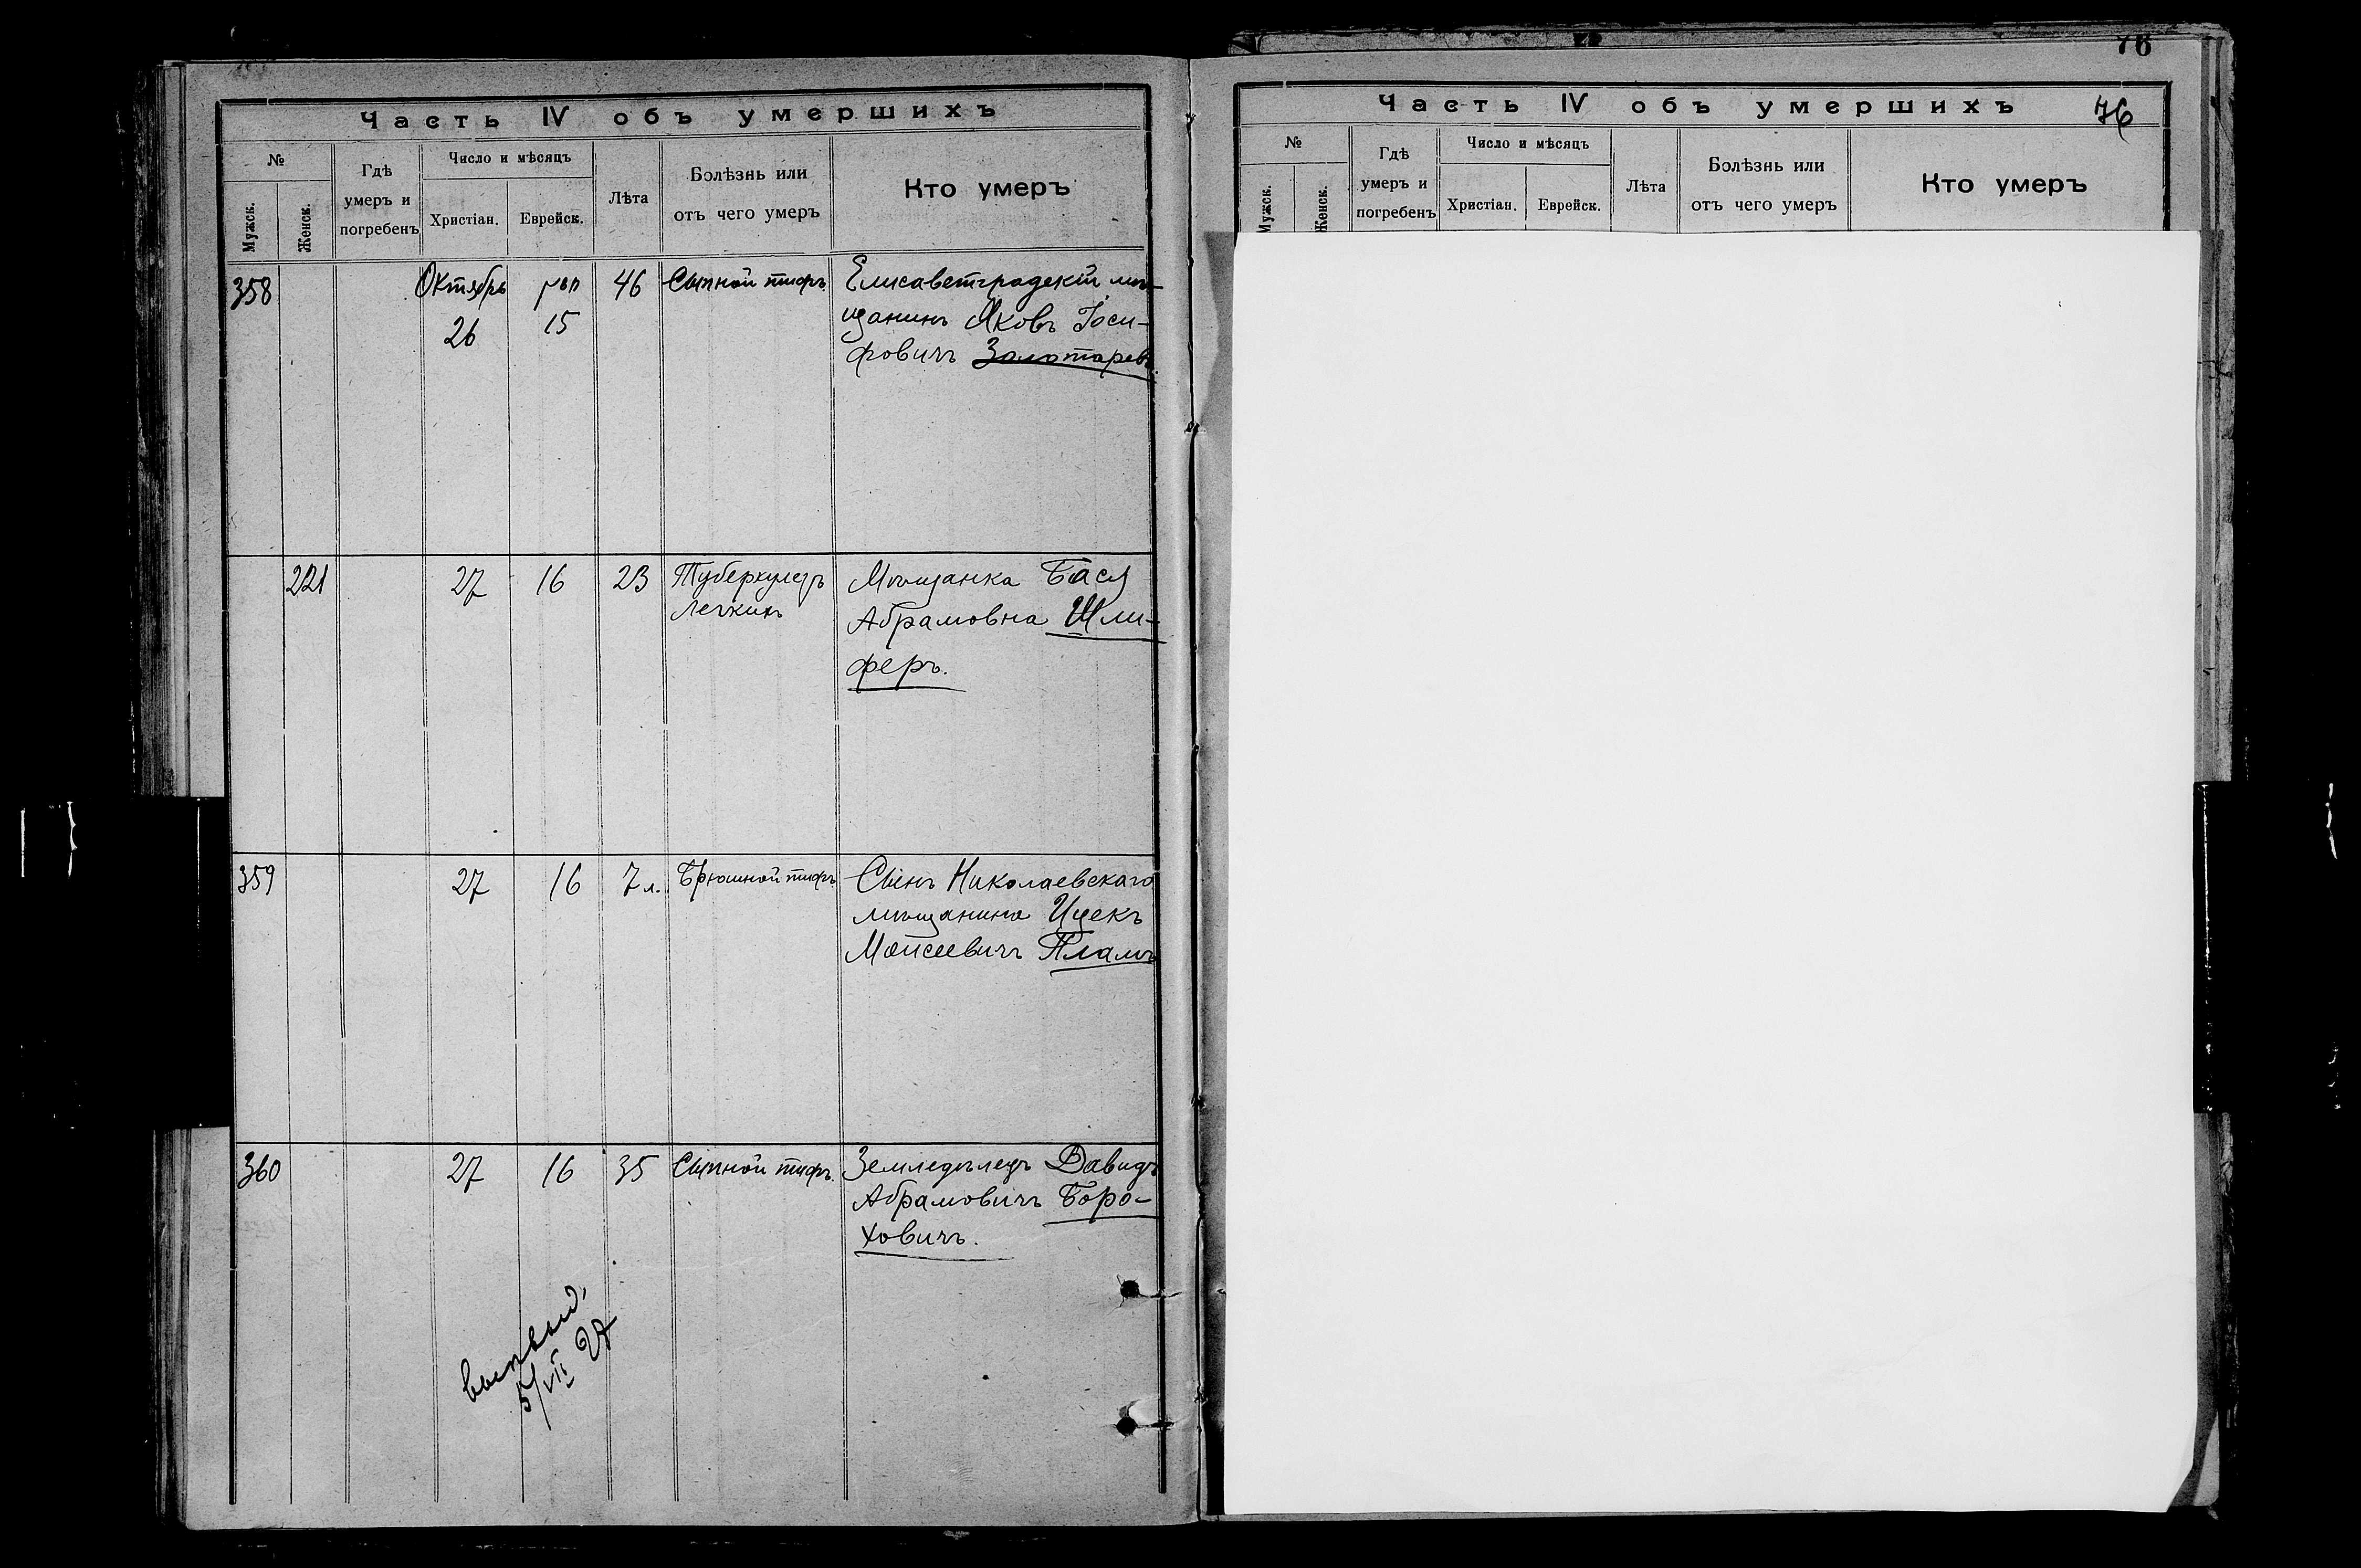 Часть IV объ умершихъ
№
Мужск.
Женск.
Гдѣ
умеръ и
погребенъ
Число и мѣсяцъ
Христіан.
Еврейск.
Лѣта
Болѣзнь или
отъ чего умеръ
Кто умеръ
358
Октябрь
26
15
46
Сыпной тифъ
Елисаветградскій мѣ-
щанинъ Яковъ Іоси-
фовичъ Золотаревъ.
221
27
16
23
Туберкулезъ
легкихъ
Мѣщанка Бася
Абрамовна Шли-
феръ.
359
27
16
7 л.
Брюшной тифъ
Сынъ Николаевскаго
мѣщанина Ицекъ
Моисеевичъ
360
27
16
35
Сыпной тифъ.
Земледѣлецъ Давидъ
Абрамовичъ Боро-
ховичъ.
5/VII 27
76
Часть IV объ умершихъ
76
№
Мужск.
Женск.
Гдѣ
умеръ и
погребенъ
Число и мѣсяцъ
Христіан.
Еврейск.
Лѣта
Болѣзнь или
отъ чего умеръ
Кто умеръ